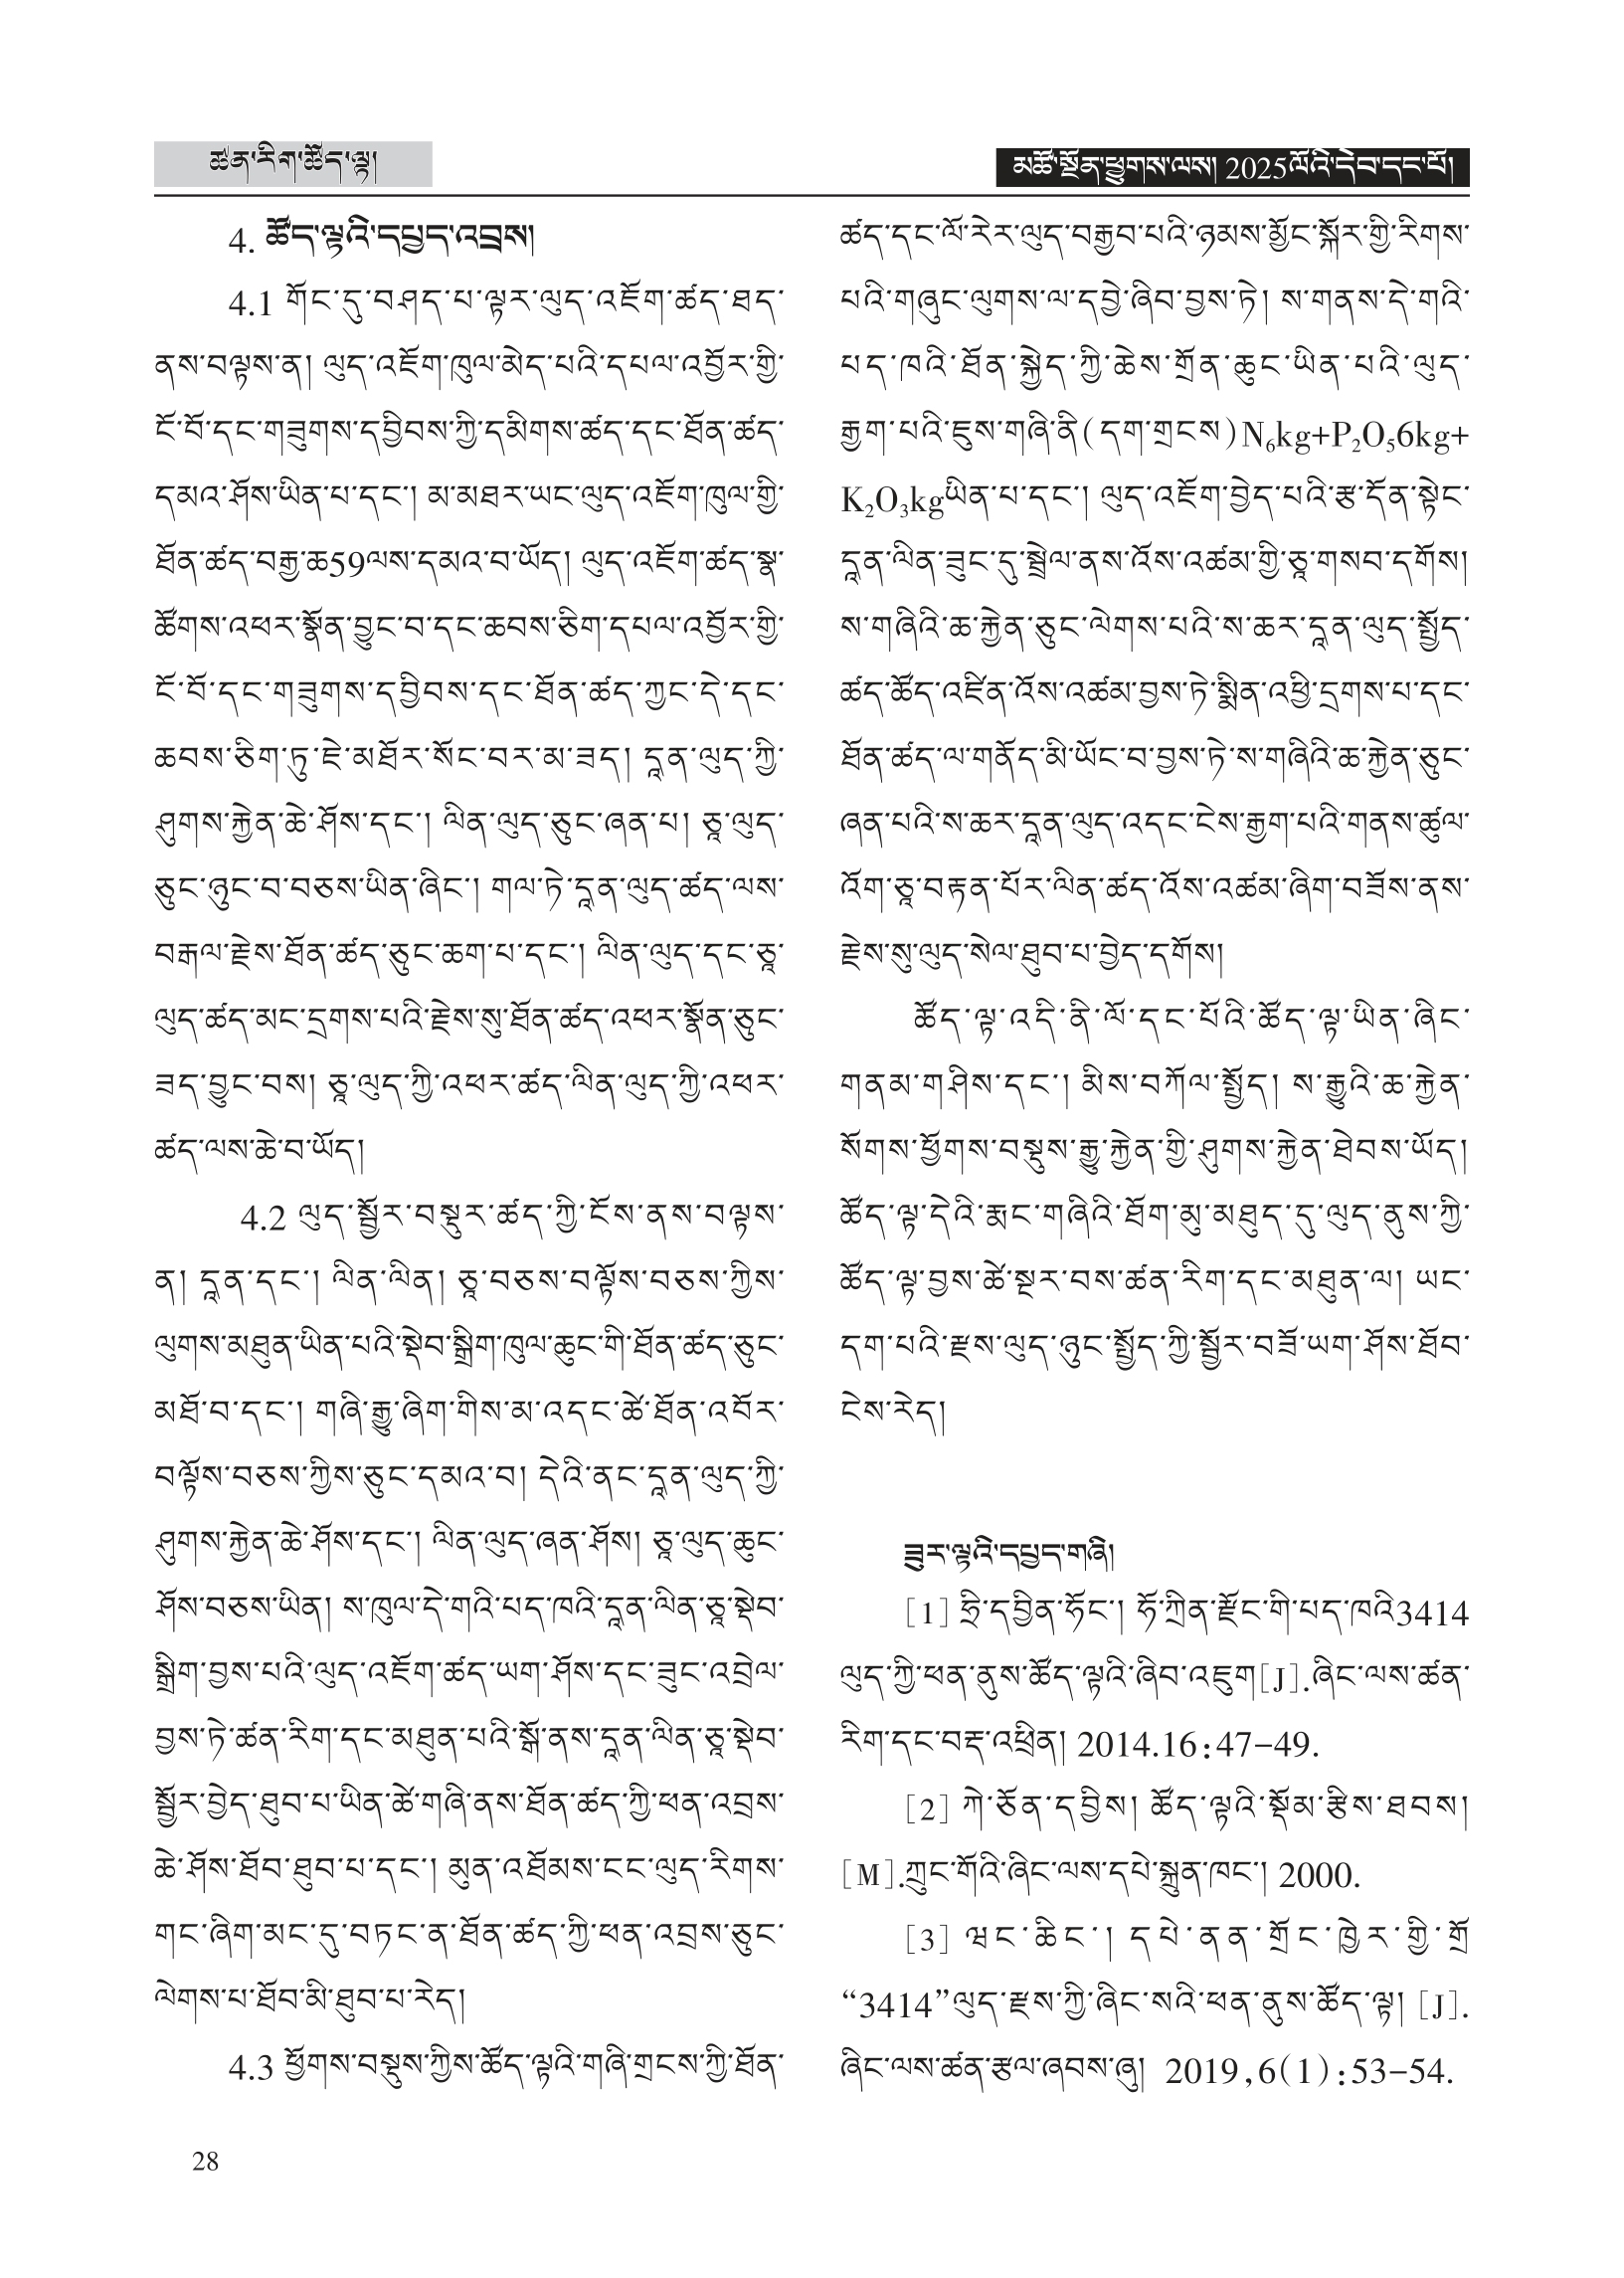 ཚན་རིག་ཚོད་ལྟ།
མཚོ་སྔོན་ཕྱུགས་ལས། 2025ལོའི་དེབ་དང་པོ།
4. ཚོད་ལྟའི་དཔྱད་འབྲས།
4.1 གོང་དུ་བཤད་པ་ལྟར་ལུད་འཇོག་ཚད་ཐད་
ནས་བལྟས་ན། ལུད་འཇོག་ཁུལ་མེད་པའི་དཔལ་འབྱོར་གྱི་
ངོ་བོ་དང་གཟུགས་དབྱིབས་ཀྱི་དམིགས་ཚད་དང་ཐོན་ཚད་
དམའ་ཤོས་ཡིན་པ་དང་། མ་མཐར་ཡང་ལུད་འཇོག་ཁུལ་གྱི་
ཐོན་ཚད་བརྒྱ་ཆ59ལས་དམའ་བ་ཡོད། ལུད་འཇོག་ཚད་སྣ་
ཚོགས་འཕར་སྣོན་བྱུང་བ་དང་ཆབས་ཅིག་དཔལ་འབྱོར་གྱི་
ངོ་བོ་དང་གཟུགས་དབྱིབས་དང་ཐོན་ཚད་ཀྱང་དེ་དང་
ཆབས་ཅིག་ཏུ་ཇེ་མཐོར་སོང་བར་མ་ཟད། དྭན་ལུད་ཀྱི་
ཤུགས་རྐྱེན་ཆེ་ཤོས་དང་། ལིན་ལུད་ཅུང་ཞན་པ། ཅྭ་ལུད་
ཅུང་ཉུང་བ་བཅས་ཡིན་ཞིང་། གལ་ཏེ་དྭན་ལུད་ཚད་ལས་
བརྒལ་རྗེས་ཐོན་ཚད་ཅུང་ཆག་པ་དང་། ལིན་ལུད་དང་ཅྭ་
ལུད་ཚད་མང་དྲགས་པའི་རྗེས་སུ་ཐོན་ཚད་འཕར་སྣོན་ཅུང་
ཟད་བྱུང་བས། ཅྭ་ལུད་ཀྱི་འཕར་ཚད་ལིན་ལུད་ཀྱི་འཕར་
ཚད་ལས་ཆེ་བ་ཡོད།
4.2 ལུད་སྦྱོར་བསྡུར་ཚད་ཀྱི་ངོས་ནས་བལྟས་
ན། དྭན་དང་། ལིན་ལིན། ཅྭ་བཅས་བལྟོས་བཅས་ཀྱིས་
ལུགས་མཐུན་ཡིན་པའི་སྡེབ་སྒྲིག་ཁུལ་ཆུང་གི་ཐོན་ཚད་ཅུང་
མཐོ་བ་དང་། གཞི་རྒྱུ་ཞིག་གིས་མ་འདང་ཚེ་ཐོན་འབོར་
བལྟོས་བཅས་ཀྱིས་ཅུང་དམའ་བ། དེའི་ནང་དྭན་ལུད་ཀྱི་
ཤུགས་རྐྱེན་ཆེ་ཤོས་དང་། ལིན་ལུད་ཞན་ཤོས། ཅྭ་ལུད་ཆུང་
ཤོས་བཅས་ཡིན། ས་ཁུལ་དེ་གའི་པད་ཁའི་དྭན་ལིན་ཅྭ་སྡེབ་
སྒྲིག་བྱས་པའི་ལུད་འཇོག་ཚད་ཡག་ཤོས་དང་ཟུང་འབྲེལ་
བྱས་ཏེ་ཚན་རིག་དང་མཐུན་པའི་སྒོ་ནས་དྭན་ལིན་ཅྭ་སྡེབ་
སྦྱོར་བྱེད་ཐུབ་པ་ཡིན་ཚེ་གཞི་ནས་ཐོན་ཚད་ཀྱི་ཕན་འབྲས་
ཆེ་ཤོས་ཐོབ་ཐུབ་པ་དང་། མུན་འཐོམས་ངང་ལུད་རིགས་
གང་ཞིག་མང་དུ་བཏང་ན་ཐོན་ཚད་ཀྱི་ཕན་འབྲས་ཅུང་
ལེགས་པ་ཐོབ་མི་ཐུབ་པ་རེད།
4.3 ཕྱོགས་བསྡུས་ཀྱིས་ཚོད་ལྟའི་གཞི་གྲངས་ཀྱི་ཐོན་
ཚད་དང་ལོ་རེར་ལུད་བརྒྱབ་པའི་ཉམས་མྱོང་སྐོར་གྱི་རིགས་
པའི་གཞུང་ལུགས་ལ་དབྱེ་ཞིབ་བྱས་ཏེ། ས་གནས་དེ་གའི་
པད་ཁའི་ཐོན་སྐྱེད་ཀྱི་ཆེས་གྲོན་ཆུང་ཡིན་པའི་ལུད་
རྒྱག་པའི་ཇུས་གཞི་ནི(དག་གྲངས)N₆kg+P₂O₅6kg+
K₂O₃kgཡིན་པ་དང་། ལུད་འཇོག་བྱེད་པའི་རྩ་དོན་སྟེང་
དྭན་ལིན་ཟུང་དུ་སྦྲེལ་ནས་འོས་འཚམ་གྱི་ཅྭ་གསབ་དགོས།
ས་གཞིའི་ཆ་རྐྱེན་ཅུང་ལེགས་པའི་ས་ཆར་དྭན་ལུད་སྤྱོད་
ཚད་ཚོད་འཛིན་འོས་འཚམ་བྱས་ཏེ་སྨིན་འཕྱི་དྲགས་པ་དང་
ཐོན་ཚད་ལ་གནོད་མི་ཡོང་བ་བྱས་ཏེ་ས་གཞིའི་ཆ་རྐྱེན་ཅུང་
ཞན་པའི་ས་ཆར་དྭན་ལུད་འདང་ངེས་རྒྱག་པའི་གནས་ཚུལ་
འོག་ཅྭ་བརྟན་པོར་ལིན་ཚད་འོས་འཚམ་ཞིག་བཟོས་ནས་
རྗེས་སུ་ལུད་སེལ་ཐུབ་པ་བྱེད་དགོས།
ཚོད་ལྟ་འདི་ནི་ལོ་དང་པོའི་ཚོད་ལྟ་ཡིན་ཞིང་
གནམ་གཤིས་དང་། མིས་བཀོལ་སྤྱོད། ས་རྒྱུའི་ཆ་རྐྱེན་
སོགས་ཕྱོགས་བསྡུས་རྒྱུ་རྐྱེན་གྱི་ཤུགས་རྐྱེན་ཐེབས་ཡོད།
ཚོད་ལྟ་དེའི་རྨང་གཞིའི་ཐོག་མུ་མཐུད་དུ་ལུད་ནུས་ཀྱི་
ཚོད་ལྟ་བྱས་ཚེ་སྔར་བས་ཚན་རིག་དང་མཐུན་ལ། ཡང་
དག་པའི་རྫས་ལུད་ཉུང་སྤྱོད་ཀྱི་སྦྱོར་བཟོ་ཡག་ཤོས་ཐོབ་
ངེས་རེད།
ཟུར་ལྟའི་དཔྱད་གཞི།
[1] ཧྲི་དབྱིན་ཧོང་། ཧོ་ཀྲིན་རྫོང་གི་པད་ཁའི3414
ལུད་ཀྱི་ཕན་ནུས་ཚོད་ལྟའི་ཞིབ་འཇུག[J].ཞིང་ལས་ཚན་
རིག་དང་བརྡ་འཕྲིན། 2014.16:47-49.
[2] ཀེ་ཅོན་དབྱིས། ཚོད་ལྟའི་སྡོམ་རྩིས་ཐབས།
[M].ཀྲུང་གོའི་ཞིང་ལས་དཔེ་སྐྲུན་ཁང་། 2000.
[3] ཝང་ཆིང་། དཔེ་ནན་གྲོང་ཁྱེར་གྱི་གྲོ
“3414”ལུད་རྫས་ཀྱི་ཞིང་སའི་ཕན་ནུས་ཚོད་ལྟ། [J].
ཞིང་ལས་ཚན་རྩལ་ཞབས་ཞུ། 2019,6(1):53-54.
28